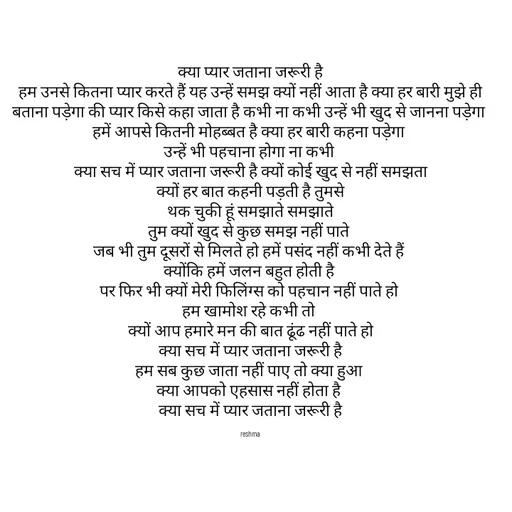 क्या प्यार जताना जरूरी है
हम उनसे कितना प्यार करते हैं यह उन्हें समझ क्यों नहीं आता है क्या हर बारी मुझे ही
बताना पड़ेगा की प्यार किसे कहा जाता है कभी ना कभी उन्हें भी खुद से जानना पड़ेगा
हमें आपसे कितनी मोहब्बत है क्या हर बारी कहना पड़ेगा
उन्हें भी पहचाना होगा ना कभी
क्या सच में प्यार जताना जरूरी है क्यों कोई खुद से नहीं समझता
क्यों हर बात कहनी पड़ती है तुमसे
थक चुकी हूं समझाते समझाते
तुम क्यों खुद से कुछ समझ नहीं पाते
जब भी तुम दूसरों से मिलते हो हमें पसंद नहीं कभी देते हैं
क्योंकि हमें जलन बहुत होती है
पर फिर भी क्यों मेरी फिलिंग्स को पहचान नहीं पाते हो
हम खामोश रहे कभी तो
क्यों आप हमारे मन की बात ढूंढ नहीं पाते हो
क्या सच में प्यार जताना जरूरी है
हम सब कुछ जाता नहीं पाए तो क्या हुआ
क्या आपको एहसास नहीं होता है
क्या सच में प्यार जताना जरूरी है
reshma